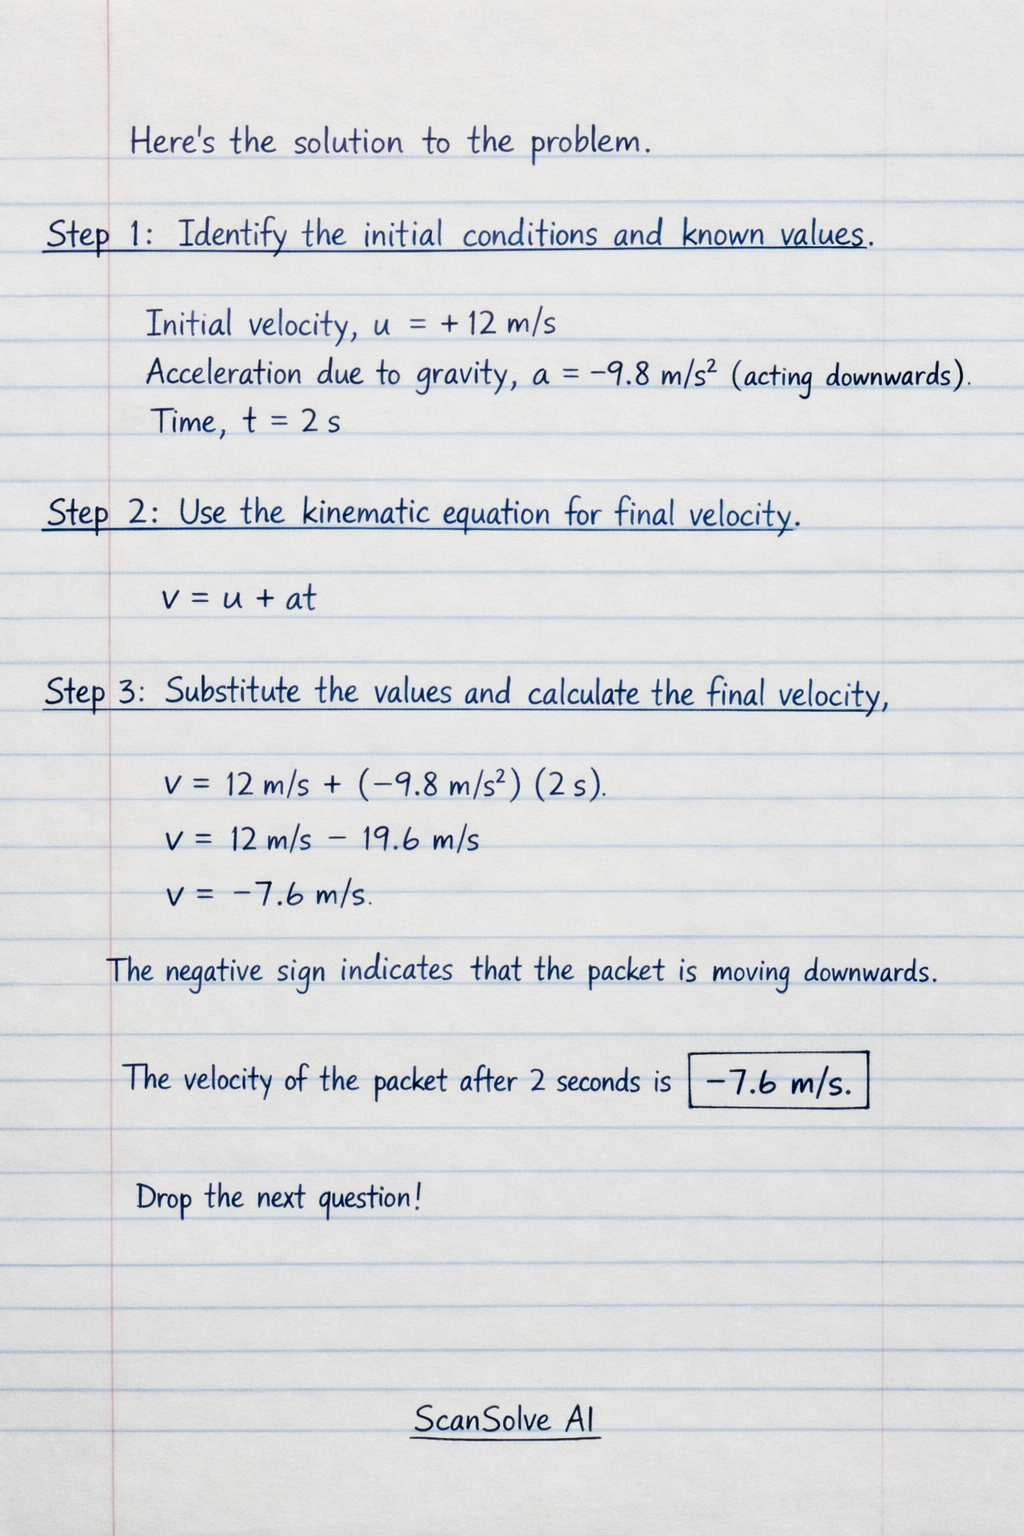 Here's the solution to the problem.
Step 1: Identify the initial conditions and known values.
Initial velocity, u = +12 m/s
Acceleration due to gravity, a = −9.8 m/s² (acting downwards).
Time, t = 2 s
Step 2: Use the kinematic equation for final velocity.
v = u + at
Step 3: Substitute the values and calculate the final velocity,
v = 12 m/s + (−9.8 m/s²) (2 s).
v = 12 m/s − 19.6 m/s
v = −7.6 m/s.
The negative sign indicates that the packet is moving downwards.
The velocity of the packet after 2 seconds is −7.6 m/s.
Drop the next question!
ScanSolve AI